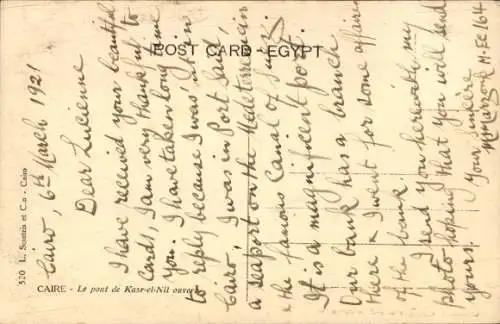 POST CARD - EGYPT
Cairo, 6th March 1921
Dear Lucienne
I have received your beautiful
cards, I am very thankful to
you. I have taken long time
to reply because I was not in
Cairo, I was in Port Said,
a seaport on the Mediterranean
& the famous Canal of Suez.
It is a magnificent port.
Our bank has a branch
there & I went for some affairs
of the bank.
I send you herewith my
photo hoping that you will send
yours.
Your sincere
520 L. Scortzis et C.o - Cairo
CAIRE - Le pont de Kasr-el-Nil ouvert